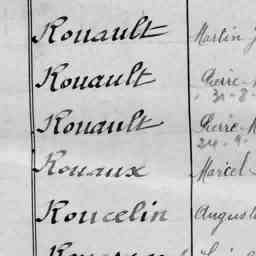 Rouault Martin
Rouault Pierre
31-8-
Rouault Pierre-M
24-9-
Rouaux Marcel
Roucelin August